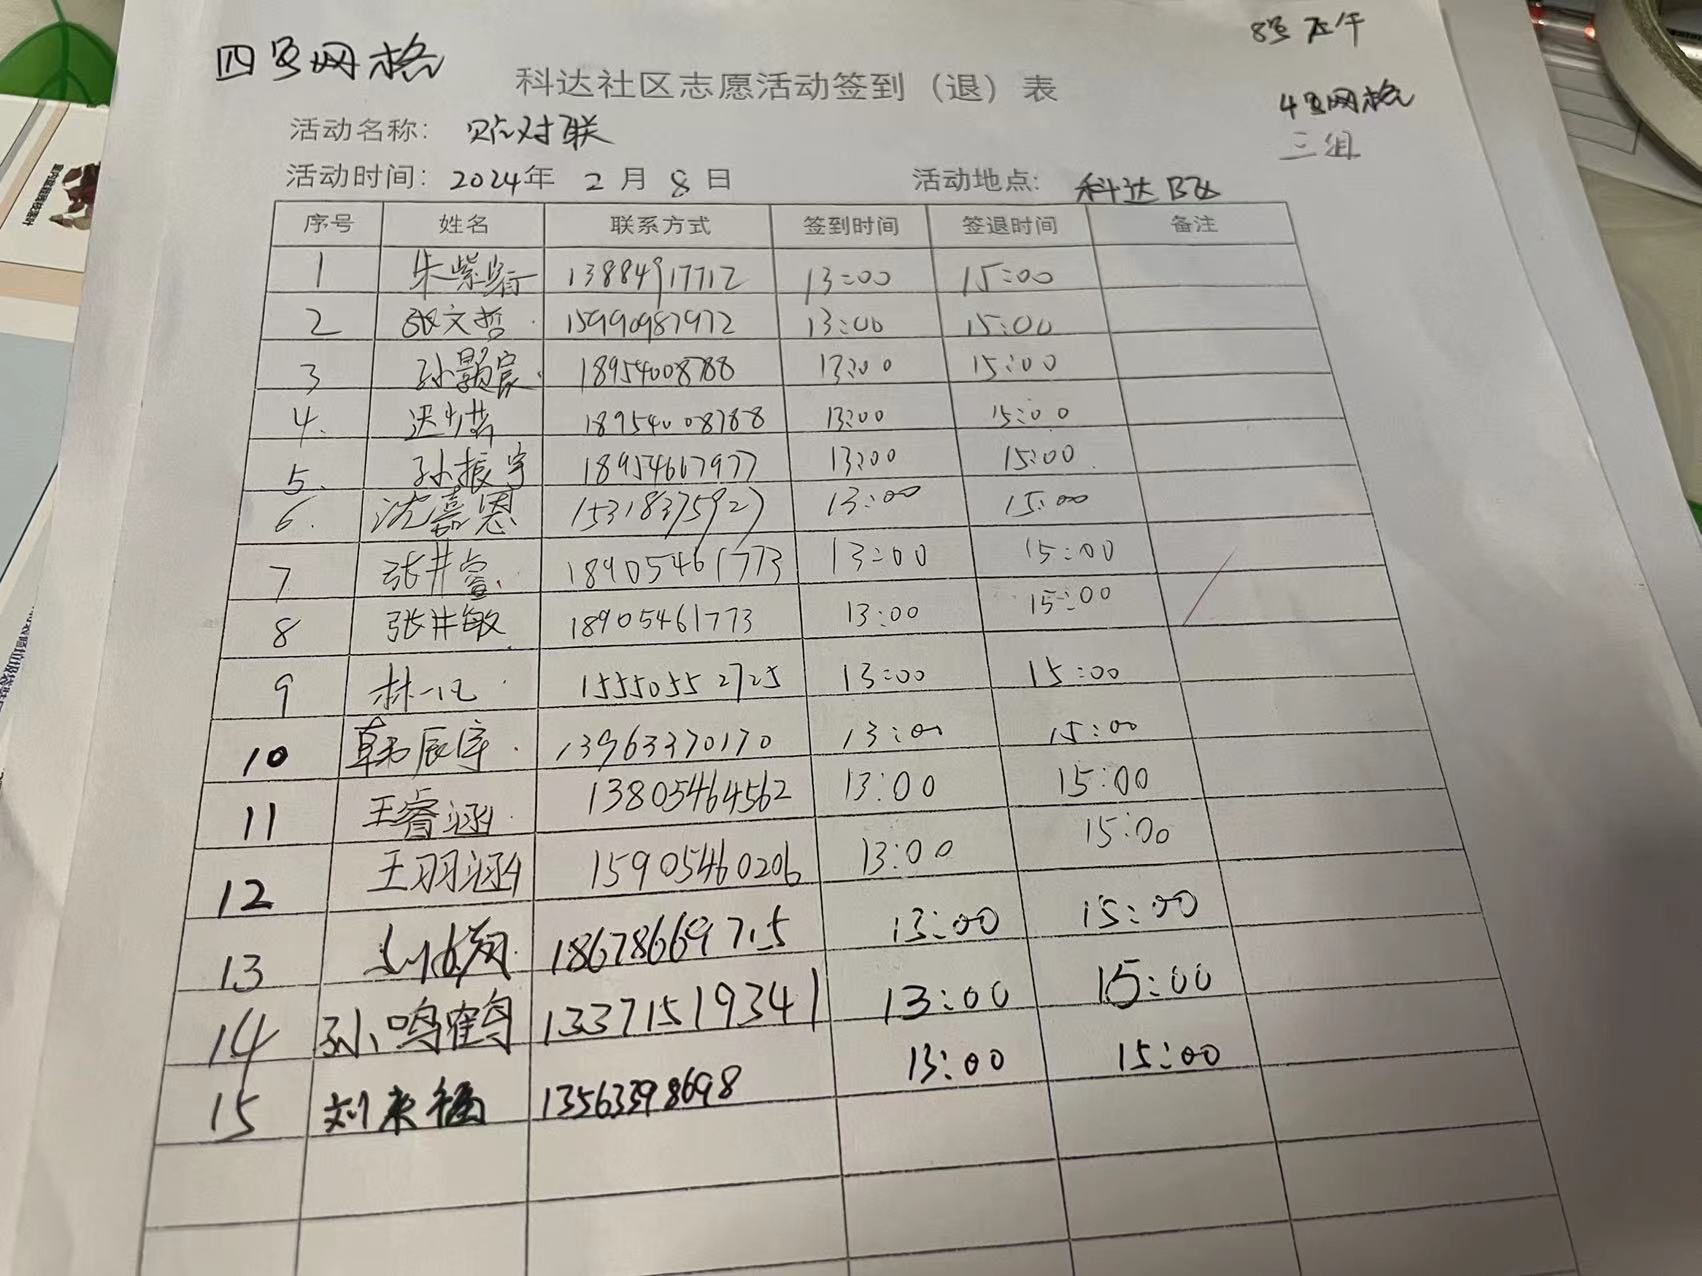 四号网格
8号下午
科达社区志愿活动签到（退）表
4号网格
三组
活动名称： 贴对联
活动时间：2024年 2 月 8 日 活动地点：科达B区
序号 姓名 联系方式 签到时间 签退时间 备注
1 朱紫 13884917712 13:00 15:00
2 张文哲 15990987972 13:00 15:00
3 孙颢宸 18954008788 13:00 15:00
4. 18954008788 13:00 15:00
5. 孙振宇 18954667977 13:00 15:00
6. 沈嘉恩 15318375927 13:00 15:00
7 张井萱 18905461773 13:00 15:00
8 张井敏 18905461773 13:00 15:00
9 林一凡 15550552725 13:00 15:00
10 韩辰宇 13963370170 13:00 15:00
11 王睿涵 13805464562 13:00 15:00
12 王羽涵 15905460206 13:00 15:00
13 18678669715 13:00 15:00
14 孙鸣鹤 13371519341 13:00 15:00
15 刘来福 13563398698 13:00 15:00